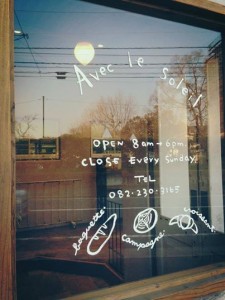 Avec le soleil
OPEN 8am - 6pm
CLOSE Every Sunday
TEL
082-230-3165
baguette
campagne
croissant